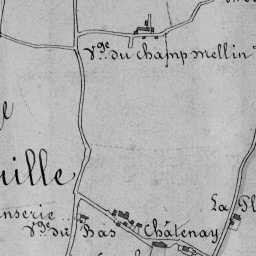 Vge. du Champ Mellin
uille
La Pl
nserie
Vge. du Bas Châtenay